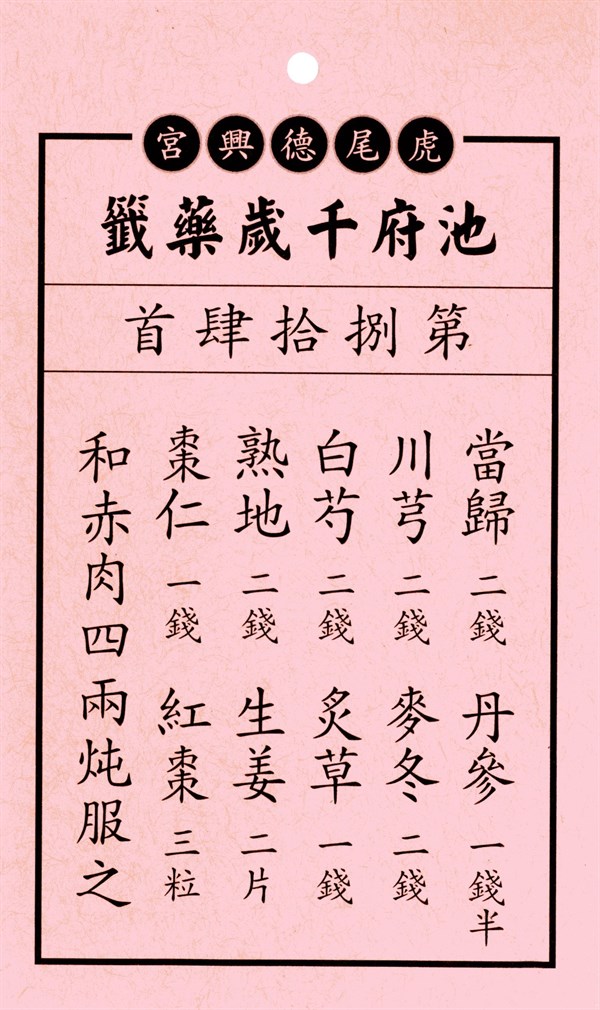 虎尾德興宮
池府千歲藥籤
第捌拾肆首
當歸二錢 丹參一錢半
川芎二錢 麥冬二錢
白芍二錢 炙草一錢
熟地二錢 生姜二片
棗仁一錢 紅棗三粒
和赤肉四兩炖服之